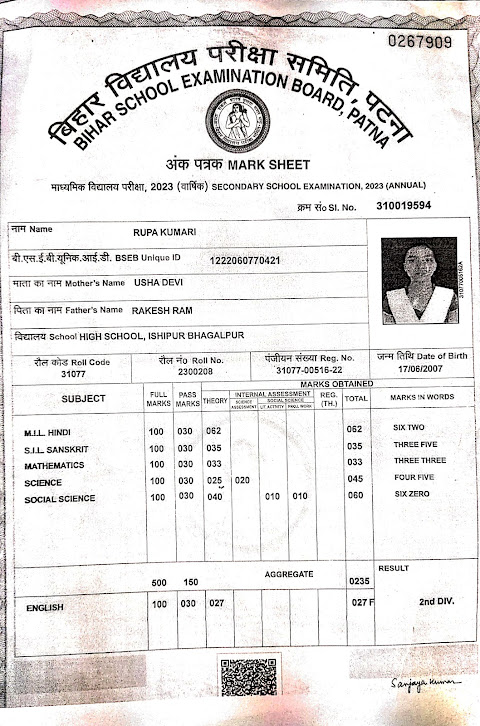 0267909
बिहार विद्यालय परीक्षा समिति, पटना
BIHAR SCHOOL EXAMINATION BOARD, PATNA
अंक पत्रक MARK SHEET
माध्यमिक विद्यालय परीक्षा, 2023 (वार्षिक) SECONDARY SCHOOL EXAMINATION, 2023 (ANNUAL)
क्रम सं० Sl. No. 310019594
नाम Name RUPA KUMARI
बी.एस.ई.बी.यूनिक.आई.डी. BSEB Unique ID 1222060770421
माता का नाम Mother's Name USHA DEVI
पिता का नाम Father's Name RAKESH RAM
विद्यालय School HIGH SCHOOL, ISHIPUR BHAGALPUR
रौल कोड Roll Code रौल नं० Roll No. पंजीयन संख्या Reg. No. जन्म तिथि Date of Birth
31077 2300208 31077-00516-22 17/06/2007
MARKS OBTAINED
SUBJECT FULL MARKS PASS MARKS THEORY INTERNAL ASSESSMENT SCIENCE ASSESSMENT SOCIAL SCIENCE LIT. ACTIVITY PROJ. WORK REG. (TH.) TOTAL MARKS IN WORDS
M.I.L. HINDI 100 030 062 062 SIX TWO
S.I.L. SANSKRIT 100 030 035 035 THREE FIVE
MATHEMATICS 100 030 033 033 THREE THREE
SCIENCE 100 030 025 020 045 FOUR FIVE
SOCIAL SCIENCE 100 030 040 010 010 060 SIX ZERO
500 150 AGGREGATE 0235 RESULT
ENGLISH 100 030 027 027 F 2nd DIV.
Sanjaya Kumar